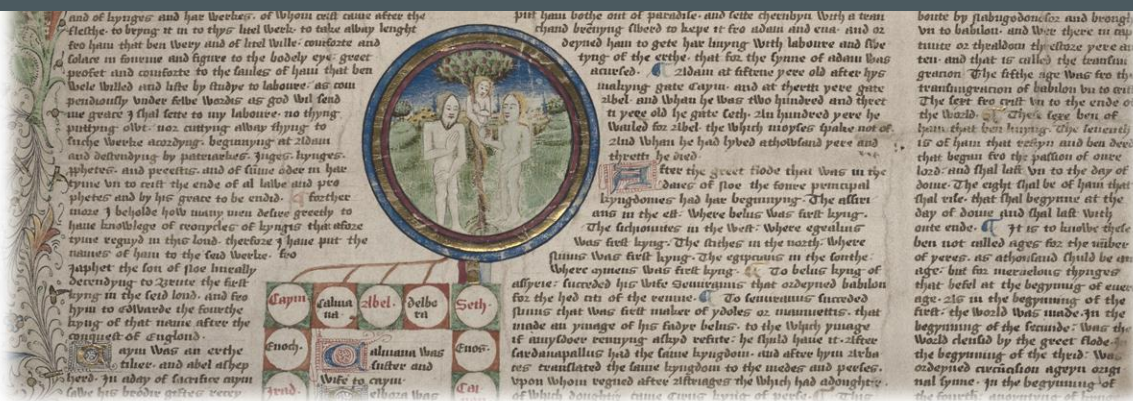 and of kynges and har werkes. of whom crist came after the
flesshe. to bryng it in to thys litel werk. to take away lenght
fro ham that ben wery and of litel wille. comforte and
solace in fourme and figure to the bodely eye. greet
profet and comforte to the saules of ham that ben
wele willed and liste by studye to laboure. as com
pendiously vnder fewe wordis as god wil send
me grace I shal sette to my laboure. no thyng
puttyng owt. nor cuttyng away thyng to
suche werke acordyng. begynnyng at Adam
and descendyng by patriarkes. Juges. kynges.
pphetes. and preestis. and of sume oder in har
tyme vn to crist the ende of al lawe and pro
phetes and by his grace to be endid. forther
more I beholde how many men desire greetly to
haue knowlege of cronycles of kyngis that afore
tyme regnyd in this lond. therfore I haue put the
names of ham to the seid werke. fro
Japhet the son of Noe lineally
descendyng to Brute the first
kyng in the seid lond. and fro
hym to Edwarde the fourthe
kyng of that name after the
conquest of England.
Caym was an erthe
tilier. and abel a shep
herd. in a day of sacrifice caym
sawe his brodir giftes recey
put ham bothe out of paradise. and sette cherubyn with a
hand brennyng swerd to kepe it fro adam and eua. and or
deyned ham to gete har liuyng with laboure and swe
tyng of the erthe. that for the synne of adam was
acursed. Adam at fiftene yere old after hys
makyng gate Caym. and at therti yere gate
Abel. and whan he was two hundred and thret
ti yere old he gate Seth. An hundred yere he
wailed for Abel. the which moyses spake not of
And whan he had lyved a thowsand yere and
thretti he died
After the greet flode that was in the
daies of Noe the foure principal
kyngdomes had har begynnyng. The assiri
ans in the est. where belus was first kyng.
The sichionites in the west. where egealius
was first kyng. The sithes in the north. where
was first kyng. The egipcians in the southe.
where was first kyng. To belus kyng of
assyrie. succeded his wife Semiramis that ordeyned babilon
for the hed citi of the reume. To semiramis succeded
ninus that was first maker of ydoles or maumettis. that
made an ymage of his fadyr belus. to the which ymage
if amysdoer rennyng askyd refute. he shuld haue it. After
sardanapallus had the same kyngdom. and after hym Arba
tes translated the same kyngdom to the medes and perses.
vpon whom regned after Astriages the which had a doughter.
of which doughter came Cirus kyng of perse. This
boute by Nabugodonosor and brought
vn to babilon. and wer there in cap
tiuite or thraldom thre score yere and
ten. and that is called the transmi
gracion The fifthe age was fro the
transmigracion of babilon vn to crist
The sext fro crist vn to the ende of
the world. These sexe ben of
ham that ben liuyng. The seuenth
is of ham that restyn and ben ded
that began fro the passion of oure
lord. and shal last vn to the day of
dome. The eight shal be of ham that
shal rise. that shal begynne at the
day of dome and shal last with
oute ende. It is to knowe these
ben not called ages for the nûber
of yeres. as a thousand shuld be an
age. but for merueilous thynges
that befel at the begynnyng of euery
age. As in the begynnyng of the
first. the world was made. In the
begynnyng of the secunde. was the
world clensid by the greet flode. In
the begynnyng of the thrid. was
ordeyned circûcision ageyn origi
nal synne. In the begynnyng of
the fourth. anoyntyng of kynges
Caym
calma
na
Abel
delbo
ra
Seth
Enoch
Calmana was
suster and
wife to caym
Enos
Irad
Delbora was
Cai